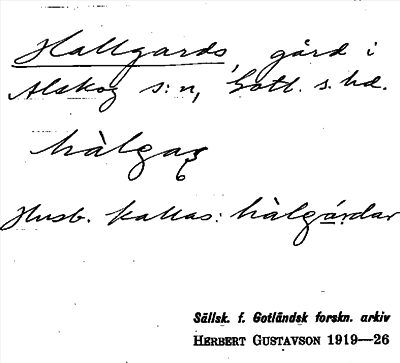 Hallgards, gård i
Alskog s:n, Gotl. s. hd.
hàlgaʒ
Husb. kallas: hàlgárdar
Sällsk. f. Gotländsk forskn. arkiv
HERBERT GUSTAVSON 1919—26